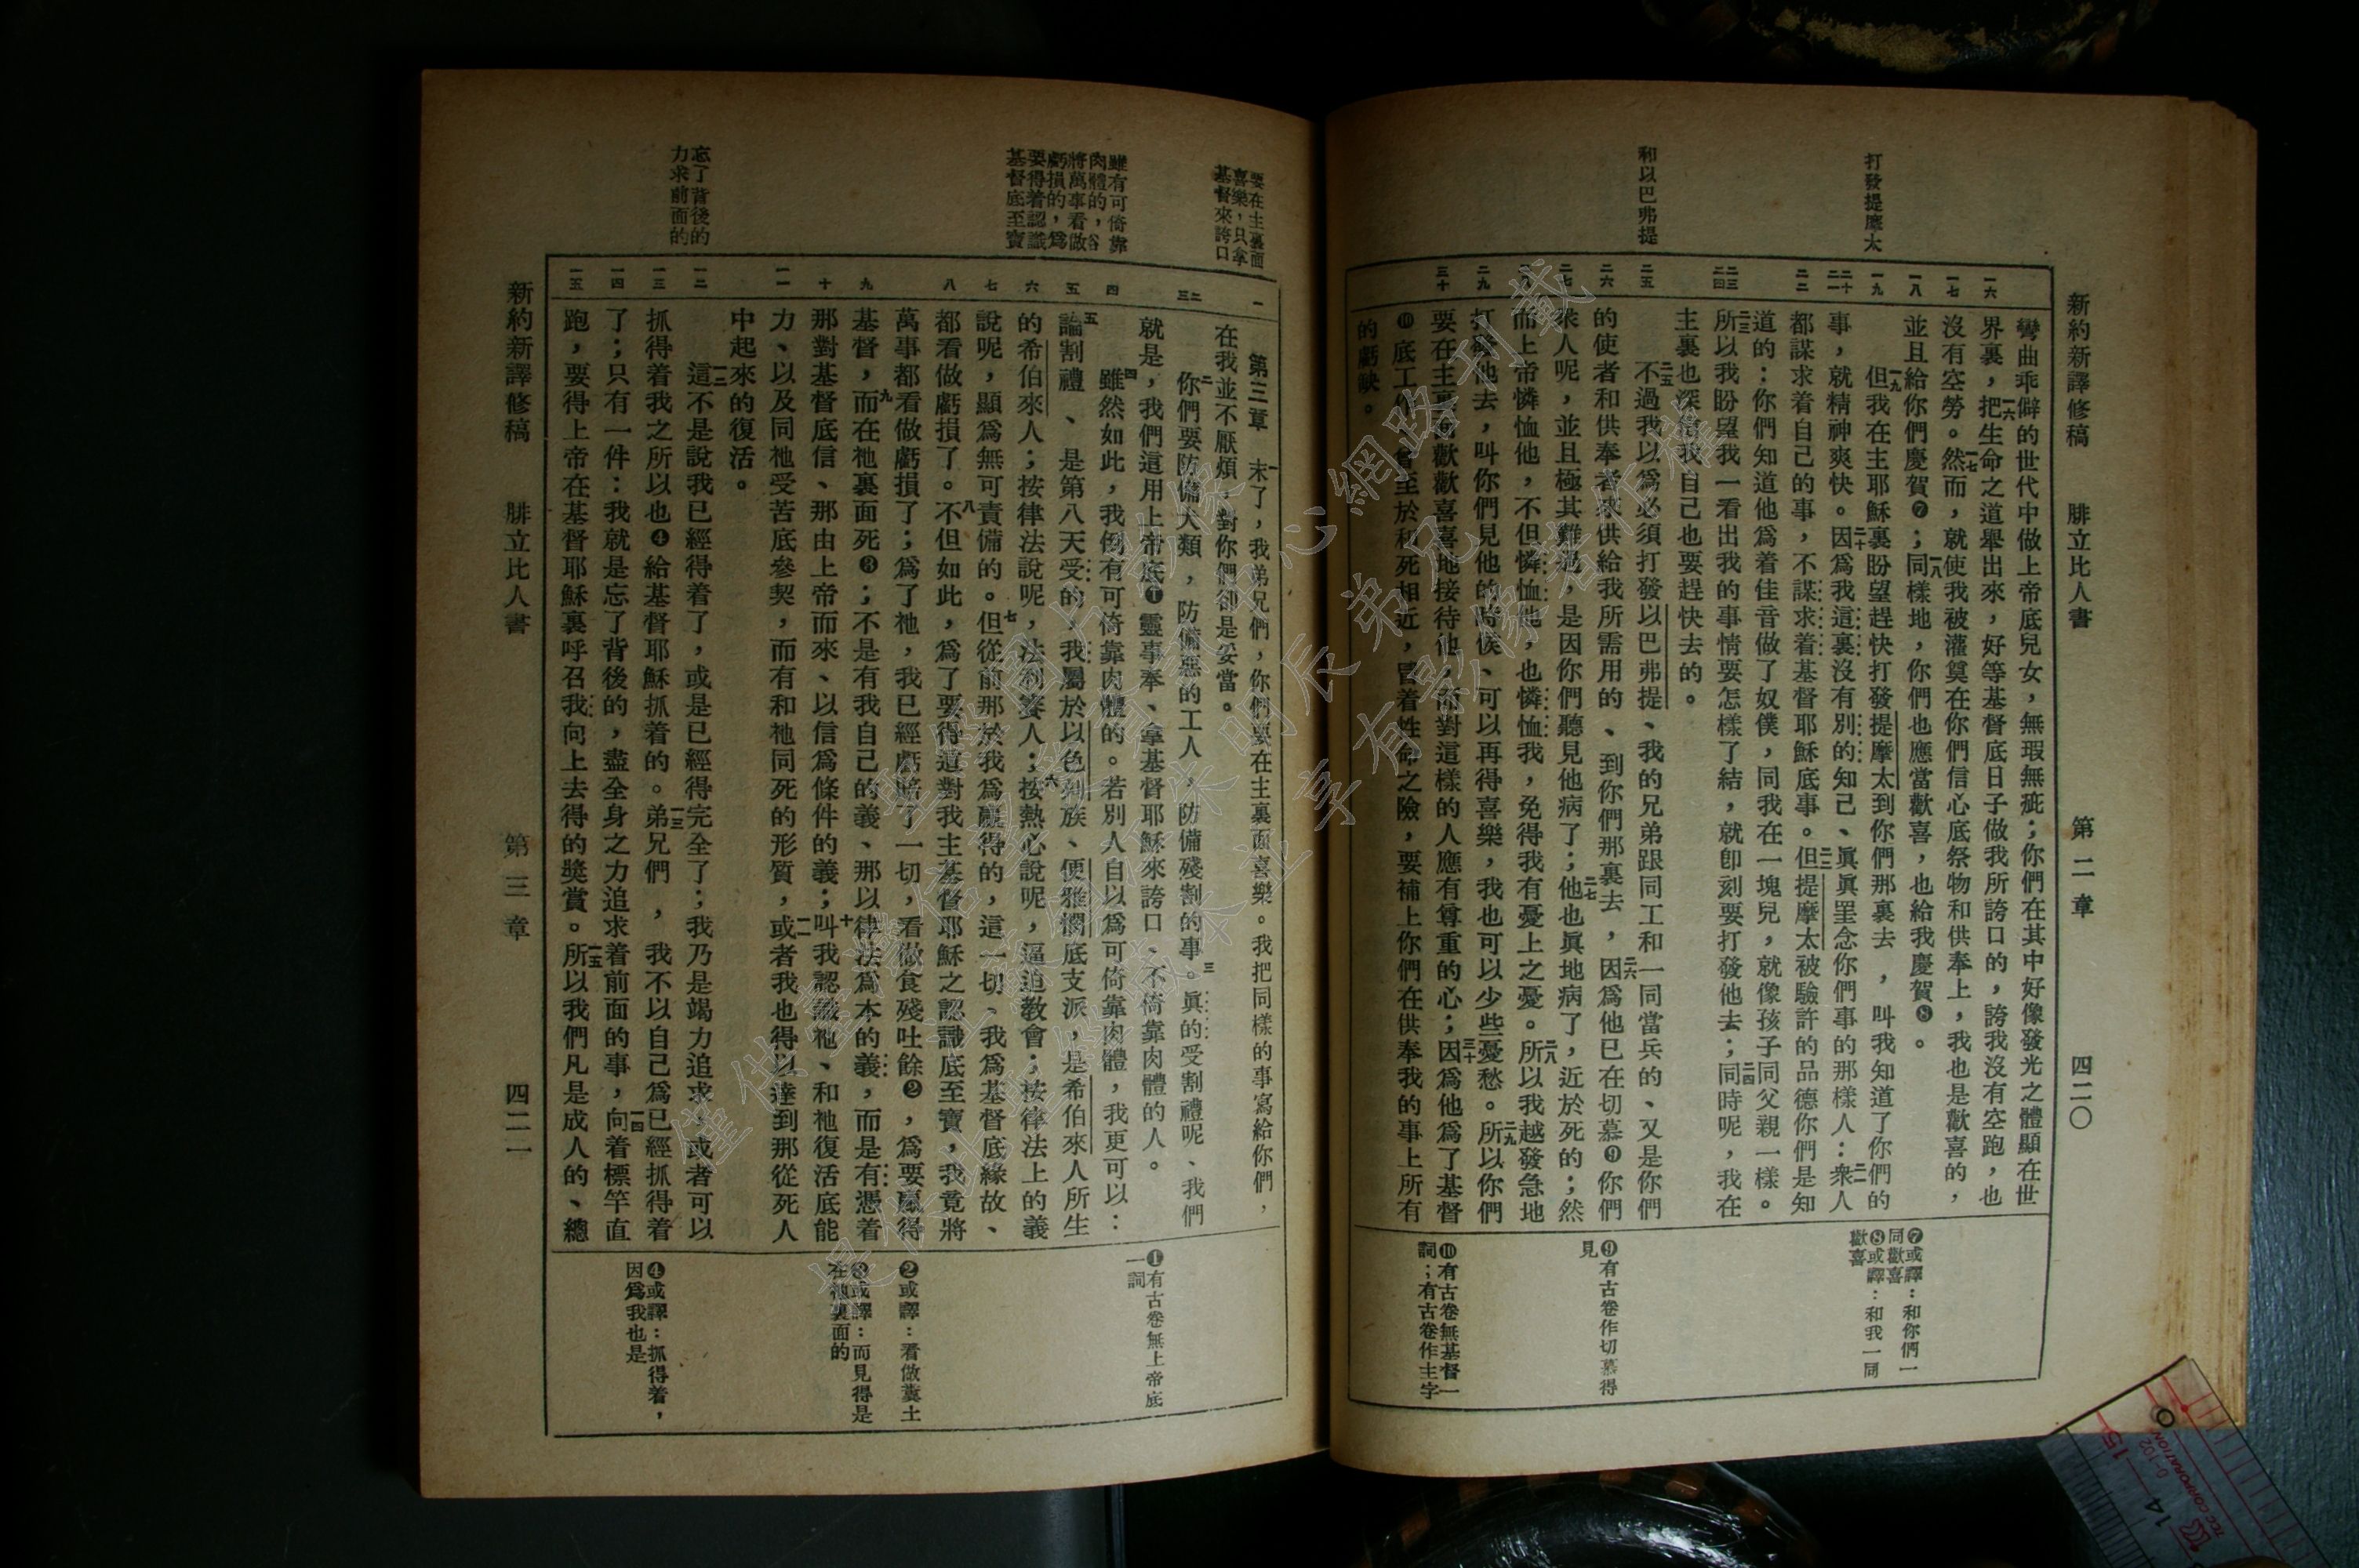 新約新譯修稿　腓立比人書　第二章　四二〇
打發提摩太
和以巴弗提
一六
一七
一八
一九
二十
二一
二二
二三
二四
二五
二六
二七
二八
二九
三十
彎曲乖僻的世代中做上帝底兒女，無瑕無疵；你們在其中好像發光之體顯在世
界裏，一六把生命之道舉出來，好等基督底日子做我所誇口的，誇我沒有空跑，也
沒有空勞。一七然而，就使我被灌奠在你們信心底祭物和供奉上，我也是歡喜的，
並且給你們慶賀❼；一八同樣地，你們也應當歡喜，也給我慶賀❽。
一九但我在主耶穌裏盼望趕快打發提摩太到你們那裏去，叫我知道了你們的
事，就精神爽快。二十因爲我這裏沒有別的知己、眞眞罣念你們事的那樣人：二一衆人
都謀求着自己的事，不謀求着基督耶穌底事。二二但提摩太被驗許的品德你們是知
道的：你們知道他爲着佳音做了奴僕，同我在一塊兒，就像孩子同父親一樣。
二三所以我盼望我一看出我的事情要怎樣了結，就卽刻要打發他去；二四同時呢，我在
主裏也深信我自己也要趕快去的。
二五不過我以爲必須打發以巴弗提、我的兄弟跟同工和一同當兵的、又是你們
的使者和供奉者來供給我所需用的、到你們那裏去，二六因爲他已在切慕❾你們
衆人呢，並且極其難過，是因你們聽見他病了；二七他也眞地病了，近於死的；然
而上帝憐恤他，不但憐恤他，也憐恤我，免得我有憂上之憂。二八所以我越發急地
打發他去，叫你們見他的時候、可以再得喜樂，我也可以少些憂愁。二九所以你們
要在主裏面歡歡喜喜地接待他，而對這樣的人應有尊重的心；三十因爲他爲了基督
❿底工作，曾至於和死相近，冒着性命之險，要補上你們在供奉我的事上所有
的虧缺。
❼或譯：和你們一
同歡喜
❽或譯：和我一同
歡喜
❾有古卷作切慕得
見
❿有古卷無基督一
詞；有古卷作主字
要在主裏面
喜樂，只拿
基督來誇口
雖有可倚靠
肉體的，谷
將萬事看做
虧損的，爲
要得着認識
基督底至寶
忘了背後的
力求前面的
一
二
三
四
五
六
七
八
九
十
一一
一二
一三
一四
一五
第三章　一末了，我弟兄們，你們要在主裏面喜樂。我把同樣的事寫給你們，
在我並不厭煩，對你們卻是妥當。
二你們要防備犬類，防備惡的工人，防備殘割的事。三眞的受割禮呢、我們
就是，我們這用上帝底❶靈事奉、拿基督耶穌來誇口、不倚靠肉體的人。
四雖然如此，我倒有可倚靠肉體的。若別人自以爲可倚靠肉體，我更可以：
五論割禮、是第八天受的，我屬於以色列族、便雅憫底支派，是希伯來人所生
的希伯來人；按律法說呢，法利賽人；六按熱心說呢，逼迫教會；按律法上的義
說呢，顯爲無可責備的。七但從前那於我爲贏得的，這一切、我爲基督底緣故、
都看做虧損了。八不但如此，爲了要得這對我主基督耶穌之認識底至寶，我竟將
萬事都看做虧損了；爲了祂，我已經虧賠了一切，看做食殘吐餘❷，爲要贏得
基督，九而在祂裏面死❸；不是有我自己的義、那以律法爲本的義，而是有憑着
那對基督底信、那由上帝而來、以信爲條件的義；十叫我認識祂、和祂復活底能
力、以及同祂受苦底參契，而有和祂同死的形質，一一或者我也得以達到那從死人
中起來的復活。
一二這不是說我已經得着了，或是已經得完全了；我乃是竭力追求，或者可以
抓得着我之所以也❹給基督耶穌抓着的。一三弟兄們，我不以自己爲已經抓得着
了；只有一件：我就是忘了背後的，盡全身之力追求着前面的事，一四向着標竿直
跑，要得上帝在基督耶穌裏呼召我向上去得的獎賞。一五所以我們凡是成人的、總
❶有古卷無上帝底
一詞
❷或譯：看做糞土
❸或譯：而見得是
在祂裏面的
❹或譯：抓得着，
因爲我也是
新約新譯修稿　腓立比人書　第三章　四二一